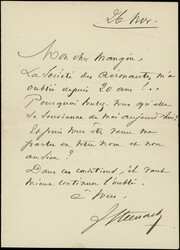 26 Nov.
Mon cher Mangin,
La Société des Aéronautes, m'a
oublié depuis 20 ans !..
Pourquoi voulez vous qu'elle
se souvienne de moi aujourd'hui?
Et puis vous êtes venu me
parler en votre nom et non
au sien?
Dans ces conditions, il vaut
mieux continuer l'oubli.
à vous